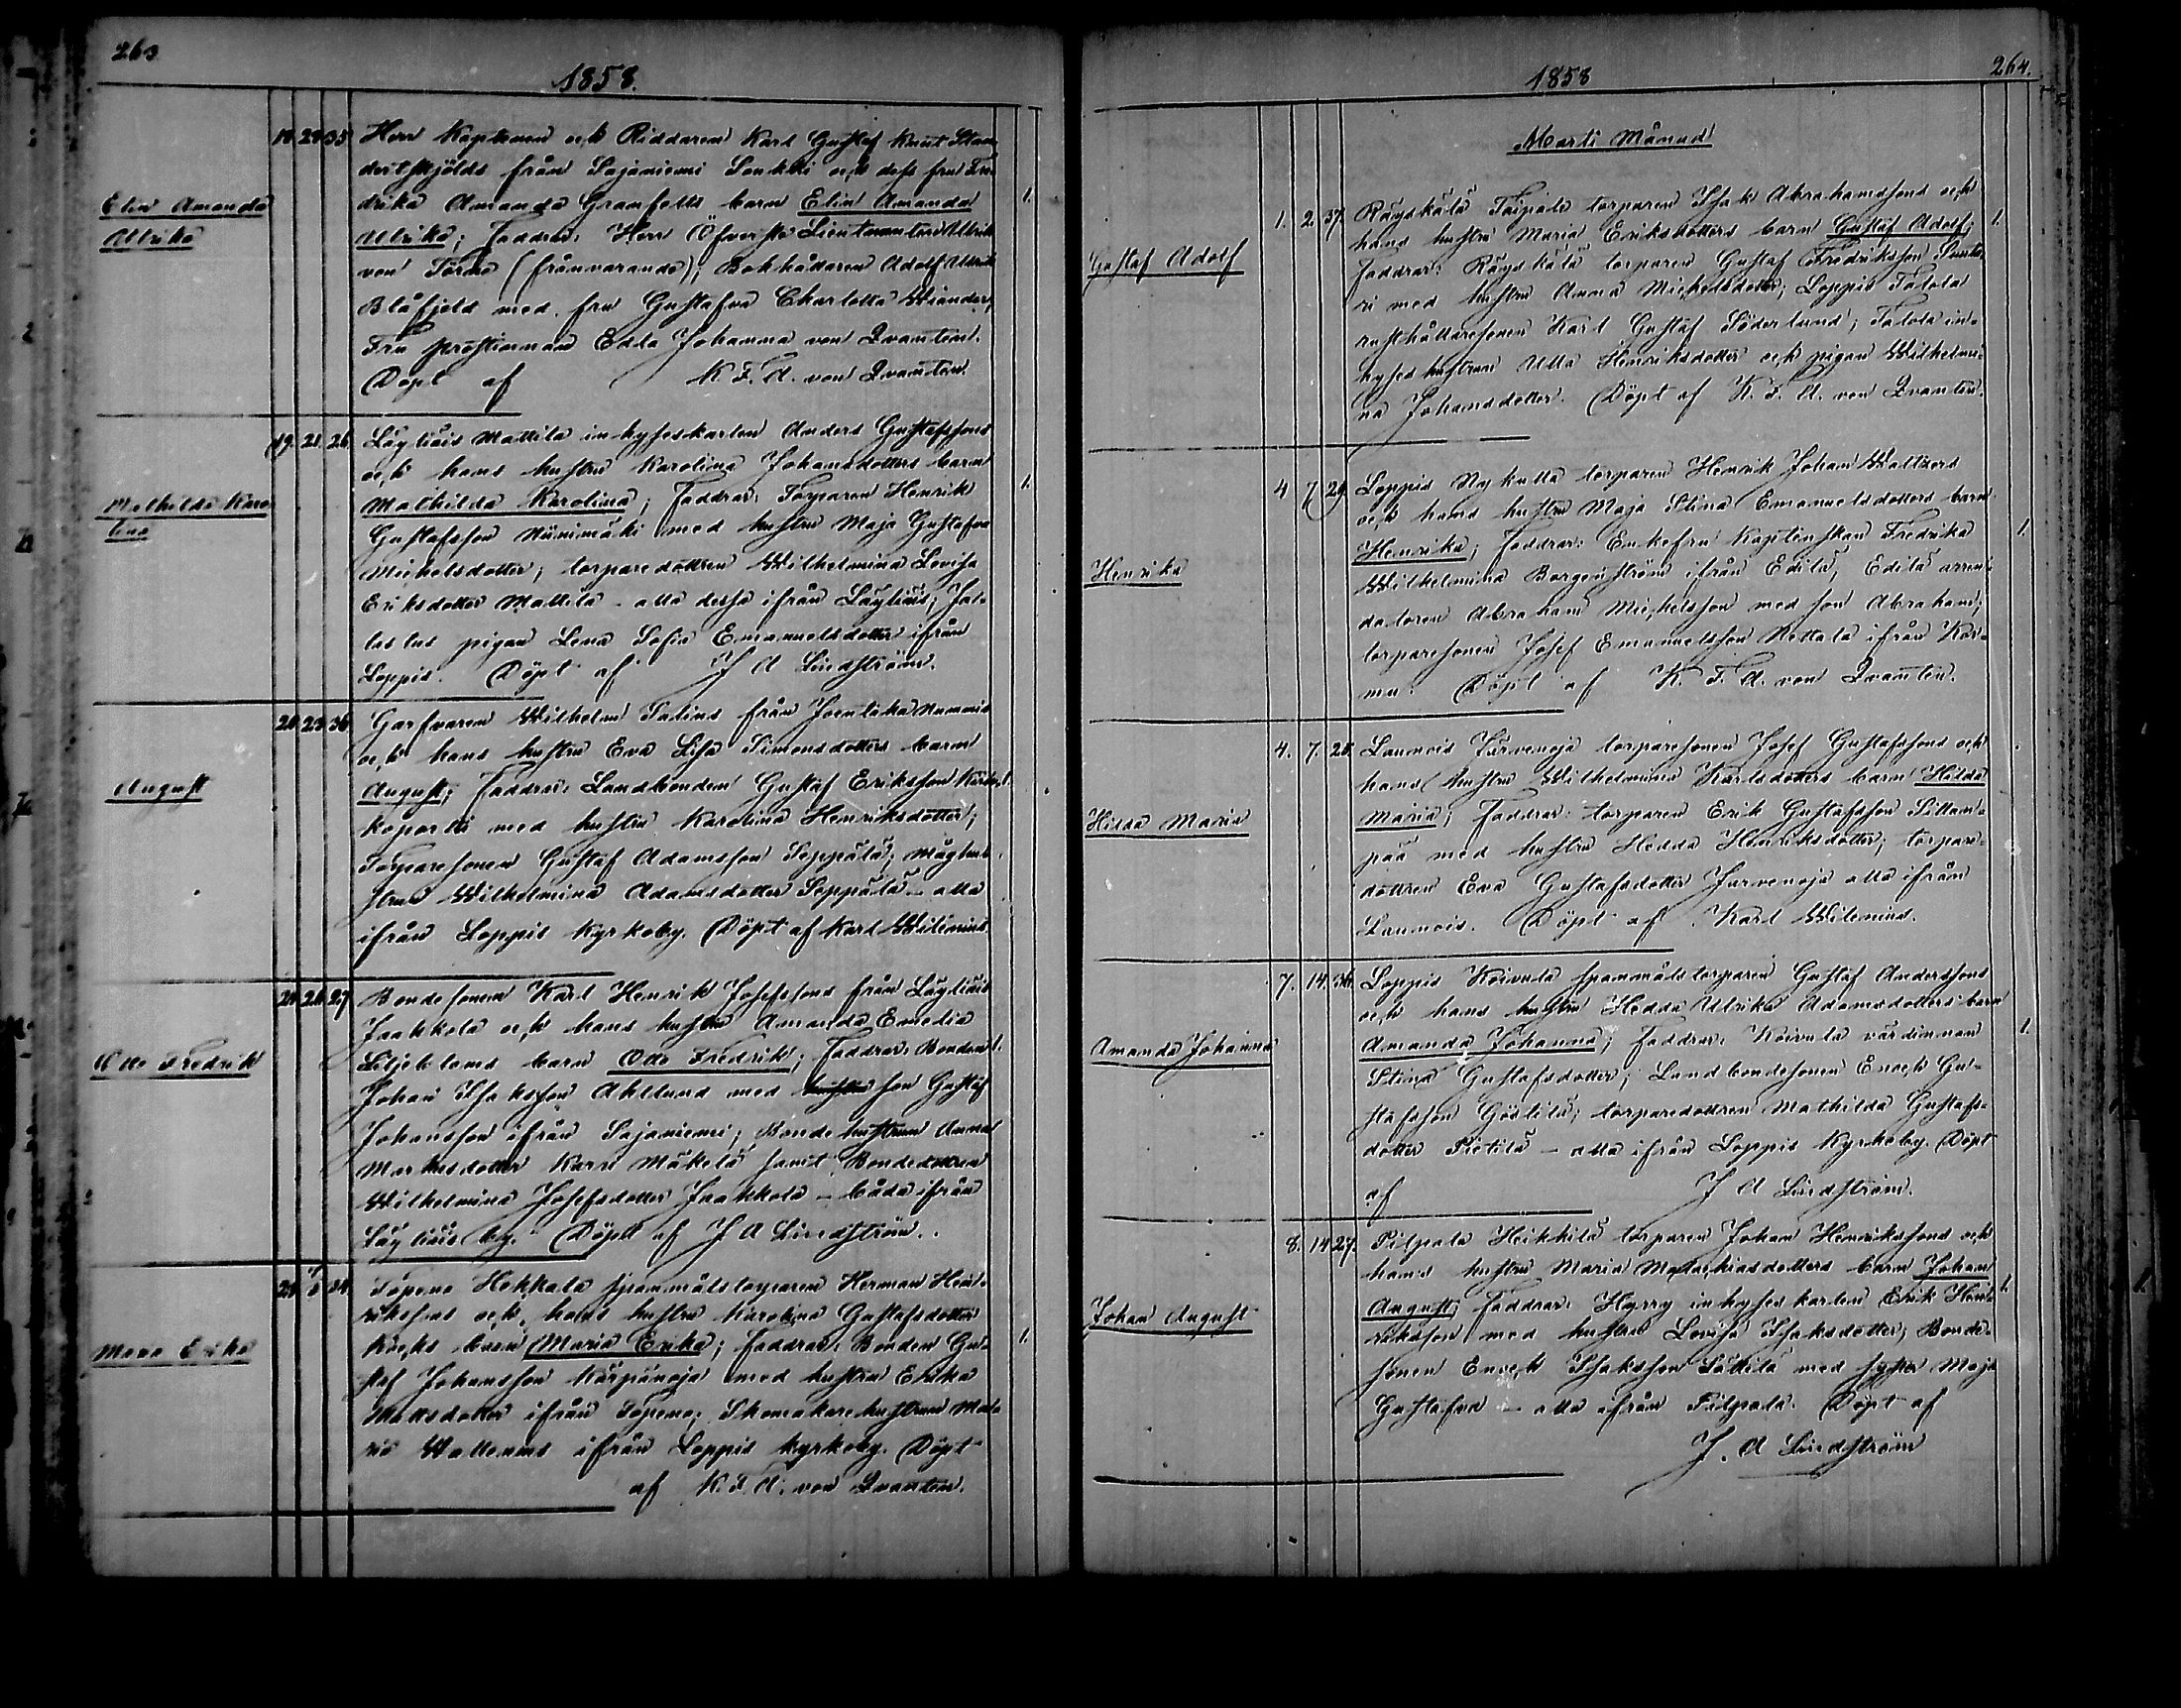 263
1858.
Elin Amanda
Ulrika
19. 24 35 Herr Kapitenen och Riddaren Karl Gustaf Knut Stan
dertskjölds från Sajaniemi Soukki och dess fru Fre
drika Amanda Granfelts barn Elin Amanda 1.
Ulrika; Faddrar: Herr Öfverste Lieutnanten Ulrik
von Törne (frånvarande); Bokhållaren Adolf Ulrik
Blåfjeld med fru Gustafva Charlotta Wiander;
Fru prostinnan Edla Johanna von Qvanten.
Döpt af K. F. A. von Qvanten.
Mathilda Karo
lina
19. 21. 26. Läyliäis Mattila inhyseskarlen Anders Gustafssons
och hans hustru Karolina Johansdotters barn
Mathilda Karolina; Faddrar: Torparen Henrik 1.
Gustafsson Niinimäki med hustru Maja Gustafva
Michelsdotter; torparedottren Wilhelmina Lovisa
Eriksdotter Mattila - alla dessa ifrån Läyliäis; Jal-
lus pigan Lena Sofia Emanuelsdotter ifrån
Loppis. Döpt af J A Lindström.
August
20 23 36 Garfvaren Wilhelm Salins från Joentaka Nummis
och hans hustru Eva Lisa Simonsdotters barn
August; Faddrar: Landbonden Gustaf Eriksson
koporti med hustru Karolina Henriksdotter;
Torparesonen Gustaf Adamsson Seppälä; måghu-
strun Wilhelmina Adamsdotter Seppälä - alla
ifrån Loppis Kyrkoby. Döpt af Karl Wilenius.
Otto Fredrik
24 26 27 Bondesonen Karl Henrik Josefssons från Läyliäis
Jaakkola och hans hustru Amanda Emelia
Liljebloms barn Otto Fredrik; Faddrar: Bonden 1.
Johan Isaksson Ahllund med hustru son Gustaf
Johansson ifrån Sajaniemi; Bondehustrun Anna
Markusdotter Karu Mäkelä samt Bondedottren
Wilhelmina Josefsdotter Jaakkola - båda ifrån
Läyliäis by. Döpt af J A Lindström.
Maria Erika
24 34 Topeno Hekkala spanmålstorparen Herman Hen-
rikssons och hans hustru Karolina Gustafsdotter
Kocks barn Maria Erika; faddrar: Bonden Gu- 1.
staf Johansson Kärpänoja med hustru Erika
Mattsdotter ifrån Topeno; Skomakarehustrun Ma
ria Wallenius ifrån Loppis kyrkoby. Döpt
af K. F. A. von Qvanten.
1858
264.
Marti Månad
Gustaf Adolf
1. 2. 37. Räyskälä Taipale torparen Isak Abrahamssons och
hans hustru Maria Eriksdotters barn Gustaf Adolf; 1.
Faddrar: Räyskälä torparen Gustaf Fredriksson
ri med hustru Anna Michelsdotter; Loppis Talola
rusthållaresonen Karl Gustaf Söderlund; Talola in-
hyses hustrun Ulla Henriksdotter och pigan Wilhelmi-
na Johansdotter. Döpt af K. F. A. von Qvanten.
Henrika
4 7 29 Loppis Nykulla torparen Henrik Johan
och hans hustru Maja Stina Emanuelsdotters barn
Henrika; faddrar: Enkefru Kaptenskan Fredrika 1.
Wilhelmina Borgenström ifrån Edila, Edila arren-
datoren Abraham Michelsson med son Abraham;
torparesonen Josef Emanuelsson Kettala ifrån Kor-
mu. Döpt af K. F. A. von Qvanten.
Hilda Maria
4. 7. 25. Launois Järvenoja torparesonen Josef Gustafssons och
hans hustru Wilhelmina Karlsdotters barn Hilda
Maria; faddrar: torparen Erik Gustafsson Sillan-
pää med hustru Hedda Henriksdotter; torpare-
dottren Eva Gustafsdotter Järvenoja alla ifrån
Launois. Döpt af Karl Wilenius.
Amanda Johanna
7. 14. 36. Loppis Koivula spanmålstorparen Gustaf Anderssons
och hans hustru Hedda Ulrika Adamsdotters barn
Amanda Johanna; faddrar: Koivula värdinnan 1.
Stina Gustafsdotter; Landbondesonen Enoch Gu-
stafsson Gostilä; torparedottren Mathilda Gustafs-
dotter Pietilä - alla ifrån Loppis Kyrkoby. Döpt
af J A Lindström.
Johan August
8. 14 27. Pilpala Heikkilä torparen Johan Henrikssons och
hans hustru Maria Matthiasdotters barn Johan
August; faddrar: Hyrry inhyses karlen Erik Hen- 1.
riksson med hustru Lovisa Isaksdotter; Bonde-
sonen Enoch Isaksson Lättilä med syster Maja
Gustafva - alla ifrån Pilpala. Döpt af
J. A Lindström